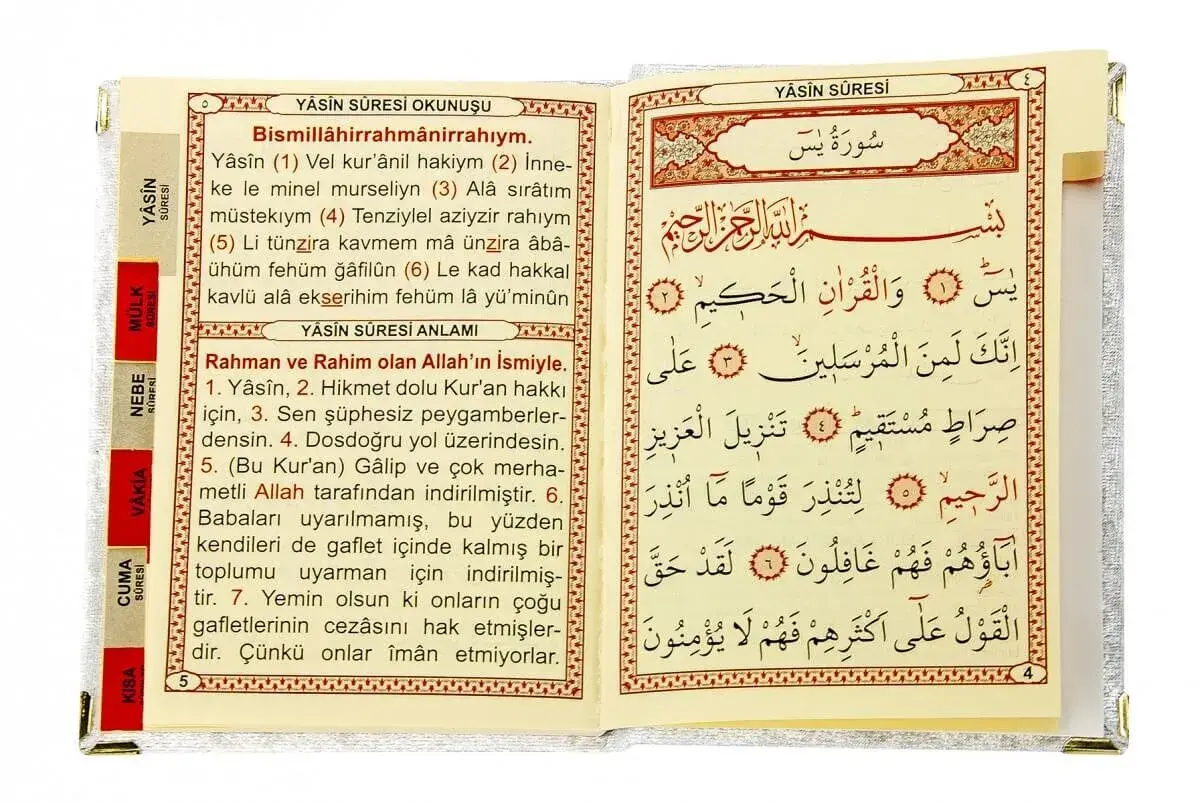 ٤
YÂSİN SÛRESİ
سُورَةُ يٰسٓ
بِسْمِ اللّٰهِ الرَّحْمٰنِ الرَّحِيمِ
يٰسٓ ۚ ﴿١﴾ وَالْقُرْاٰنِ الْحَكٖيمِۙ ﴿٢﴾
اِنَّكَ لَمِنَ الْمُرْسَلٖينَۙ ﴿٣﴾ عَلٰى
صِرَاطٍ مُسْتَقٖيمٍۜ ﴿٤﴾ تَنْزٖيلَ الْعَزٖيزِ
الرَّحٖيمِۙ ﴿٥﴾ لِتُنْذِرَ قَوْمًا مَٓا اُنْذِرَ
اٰبَٓاؤُ۬هُمْ فَهُمْ غَافِلُونَ ﴿٦﴾ لَقَدْ حَقَّ
الْقَوْلُ عَلٰٓى اَكْثَرِهِمْ فَهُمْ لَا يُؤْمِنُونَ
4
٥
YÂSİN SÛRESİ OKUNUŞU
Bismillâhirrahmânirrahıym.
Yâsîn (1) Vel kur’ânil hakiym (2) İnne-
ke le minel murseliyn (3) Alâ sırâtım
müstekıym (4) Tenziylel aziyzir rahıym
(5) Li tünzira kavmem mâ ünzira âbâ-
ühüm fehüm ğafilûn (6) Le kad hakkal
kavlü alâ ekserihim fehüm lâ yü’minûn
YÂSİN SÛRESİ ANLAMI
Rahman ve Rahim olan Allah’ın İsmiyle.
1. Yâsîn, 2. Hikmet dolu Kur'an hakkı
için, 3. Sen şüphesiz peygamberler-
densin. 4. Dosdoğru yol üzerindesin.
5. (Bu Kur'an) Gâlip ve çok merha-
metli Allah tarafından indirilmiştir. 6.
Babaları uyarılmamış, bu yüzden
kendileri de gaflet içinde kalmış bir
toplumu uyarman için indirilmiş-
tir. 7. Yemin olsun ki onların çoğu
gafletlerinin cezâsını hak etmişler-
dir. Çünkü onlar îmân etmiyorlar.
5
YÂSİN
SÛRESİ
MÜLK
SÛRESİ
NEBE
SÛRESİ
VÂKIA
CUMA
SÛRESİ
KISA